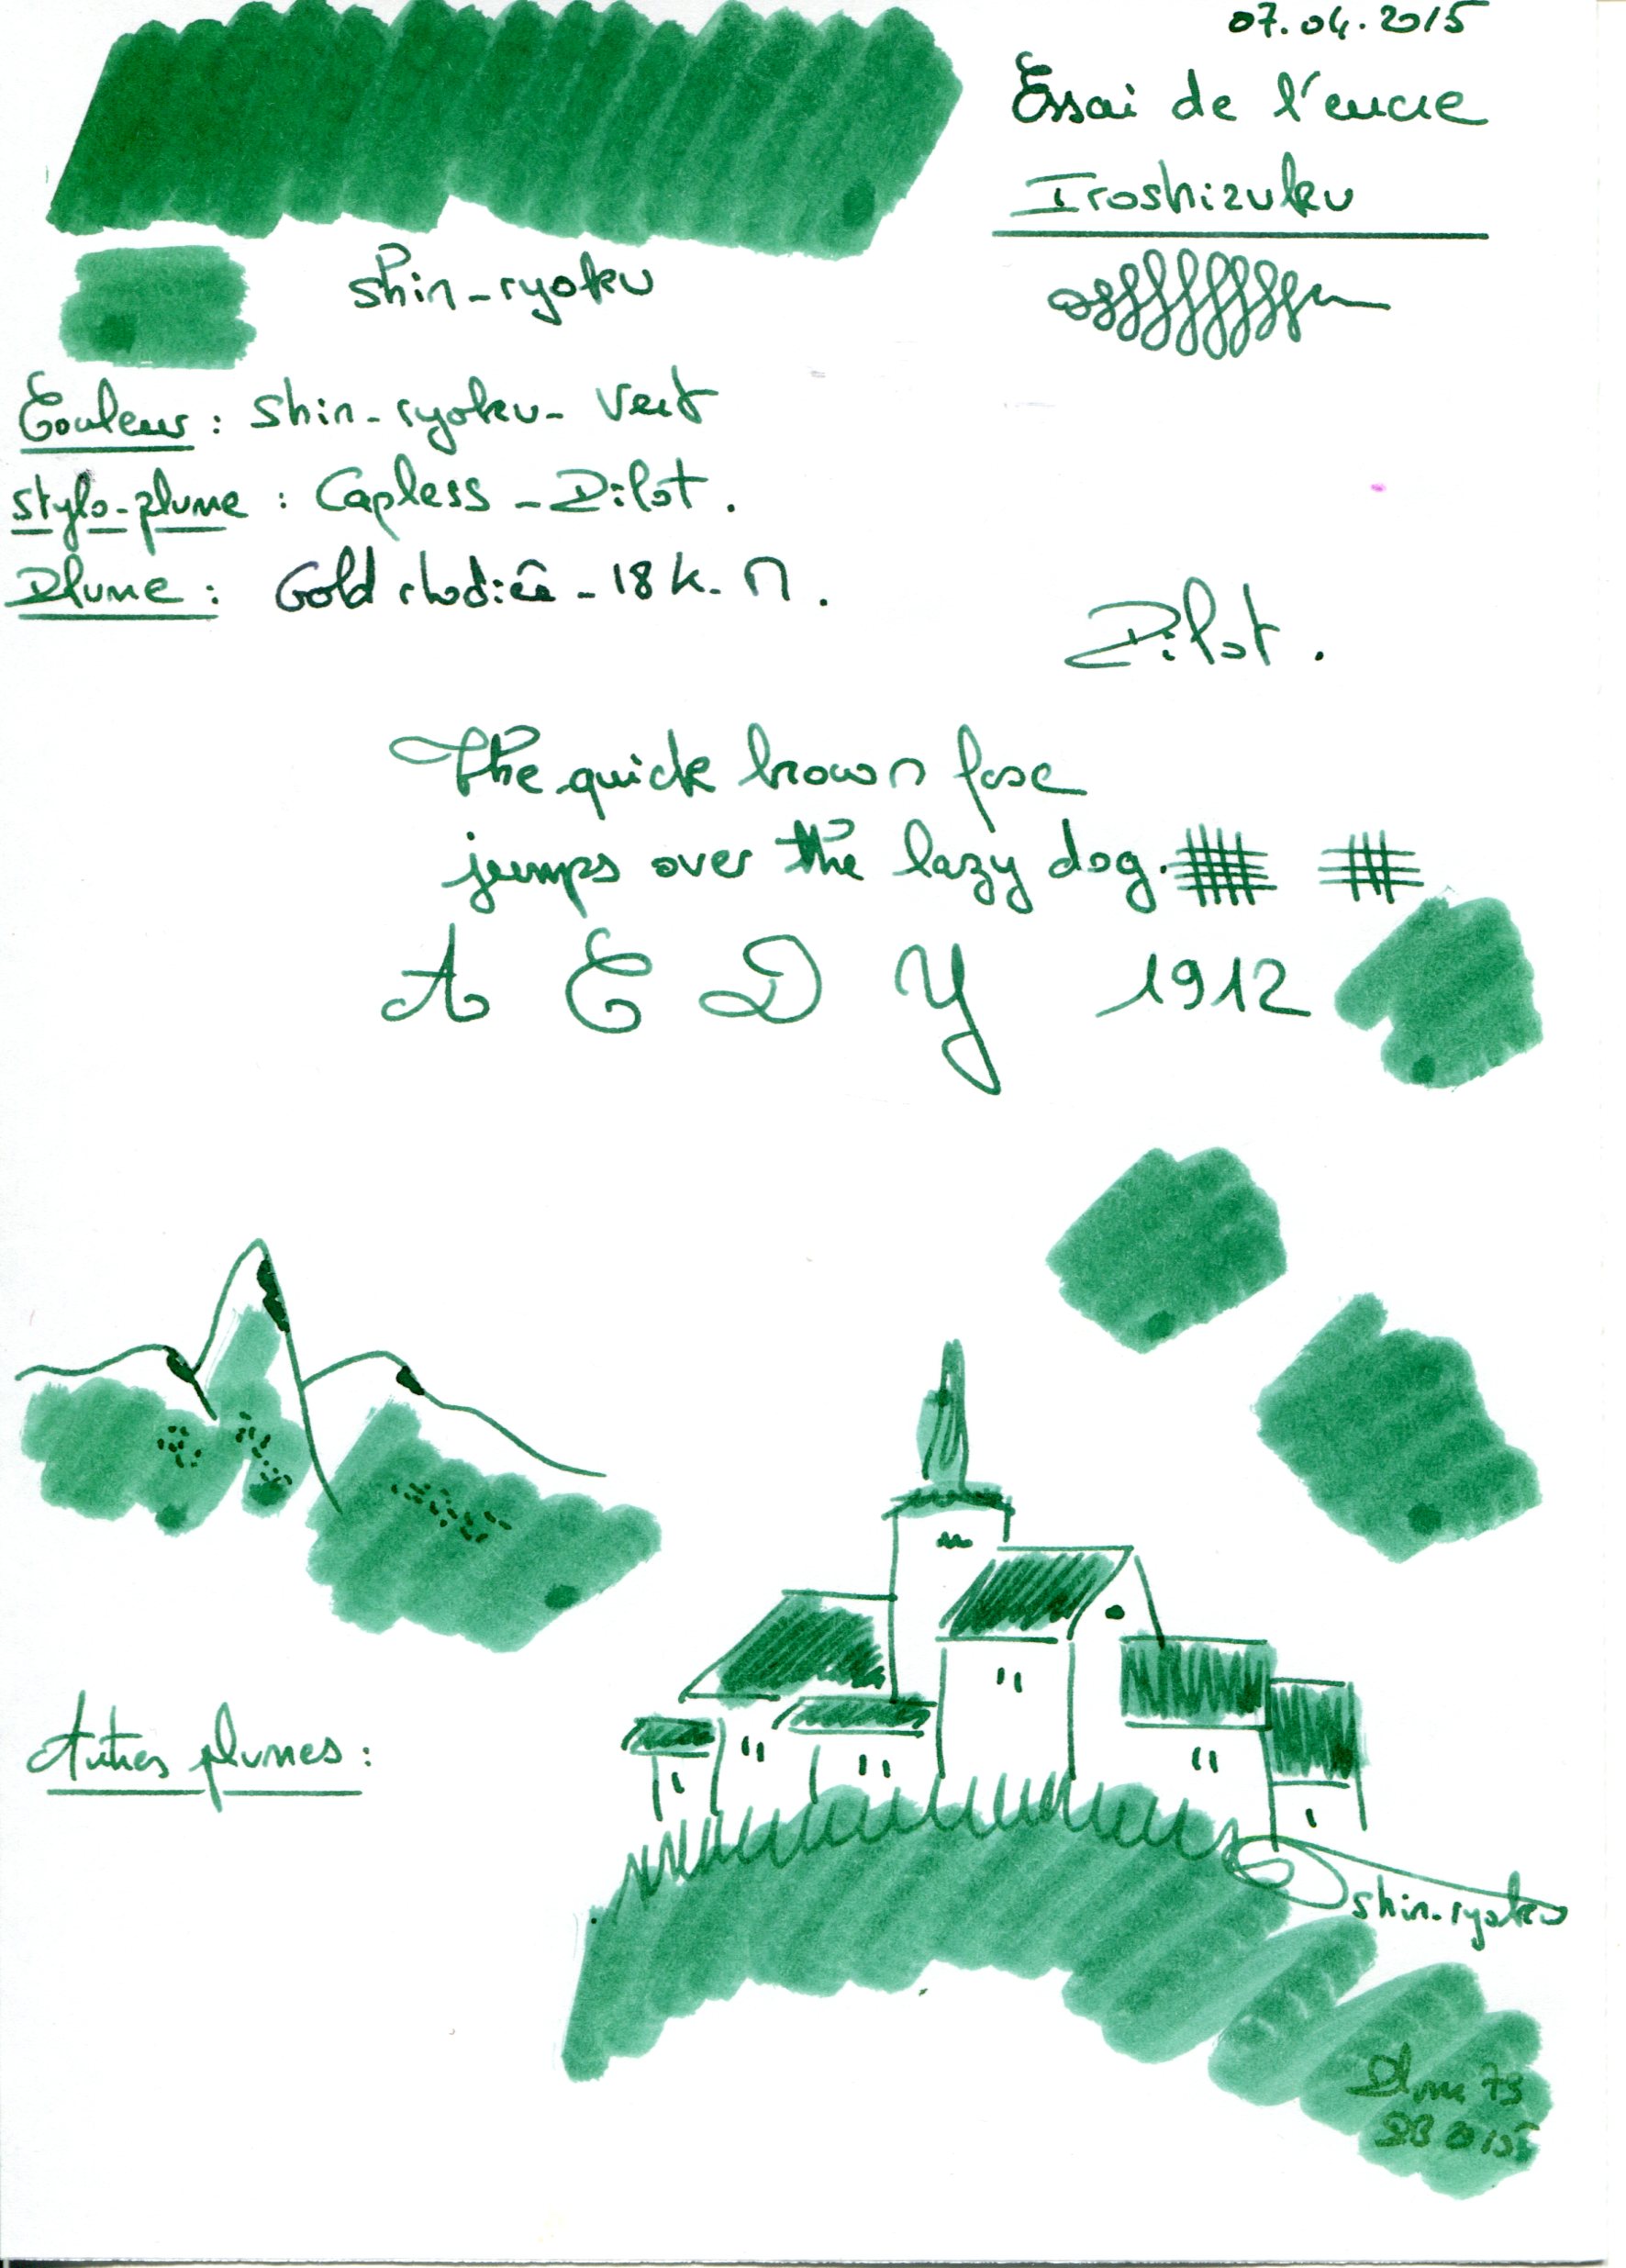 07.04.2015
Essai de l'encre
Iroshizuku
shin-ryoku
Couleur : shin-ryoku - Vert
Stylo-plume : Capless - Pilot.
Plume : Gold rhodiée - 18 K. M.
Pilot.
The quick brown fox
jumps over the lazy dog.
A E D Y 1912
Autres plumes :
shin-ryoku
Plume 73
2015